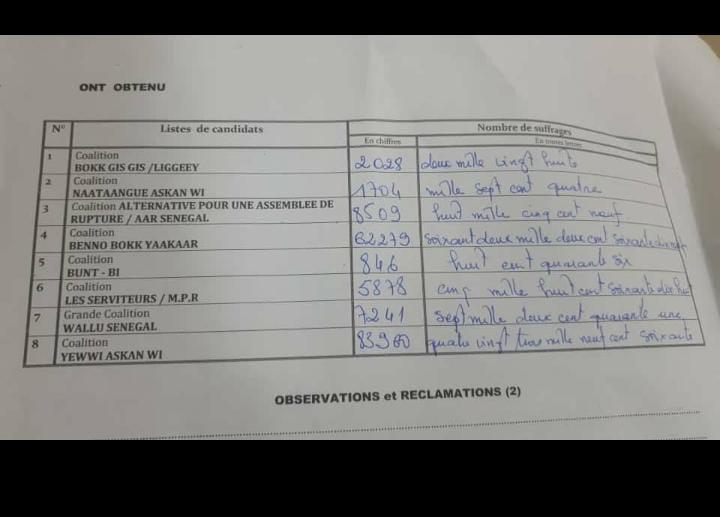 ONT OBTENU
N° Listes de candidats Nombre de suffrages
En chiffres En toutes lettres
1 Coalition
BOKK GIS GIS /LIGGEEY 2028 deux mille vingt huit
2 Coalition
NAATAANGUE ASKAN WI 1704 mille sept cent quatre
3 Coalition ALTERNATIVE POUR UNE ASSEMBLEE DE
RUPTURE / AAR SENEGAL 8509 huit mille cinq cent neuf
4 Coalition
BENNO BOKK YAAKAAR 62279 soixant deux mille deux cent soixante dix neuf
5 Coalition
BUNT - BI 846 huit cent quarante six
6 Coalition
LES SERVITEURS / M.P.R 5878 cinq mille huit cent soixante dix huit
7 Grande Coalition
WALLU SENEGAL 7241 sept mille deux cent quarante une
8 Coalition
YEWWI ASKAN WI 83960 quatre vingt trois mille neuf cent soixante
OBSERVATIONS et RECLAMATIONS (2)